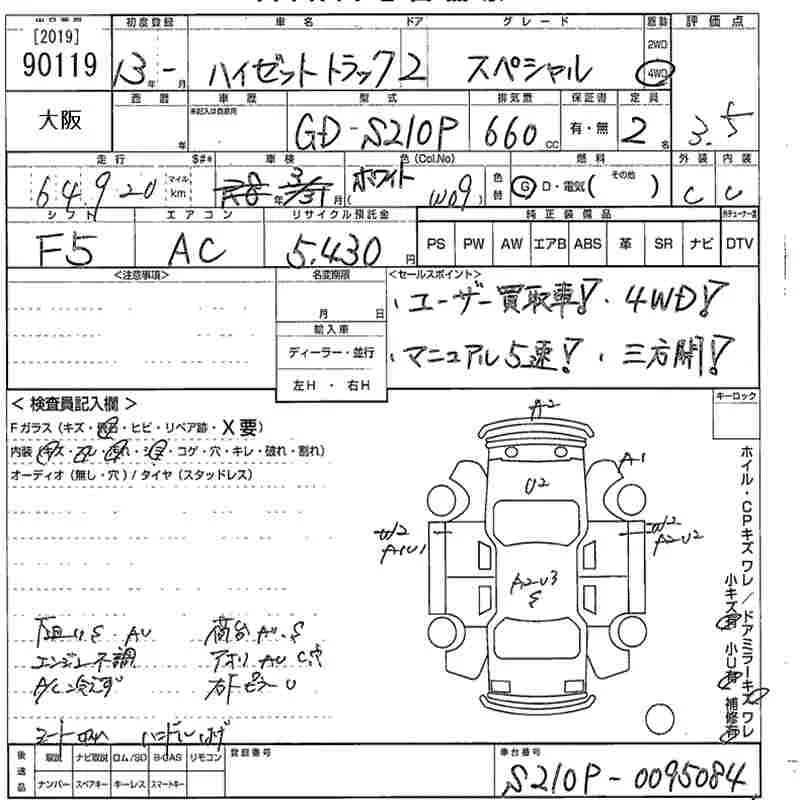 [2019]
90119
大阪
初度登録 車名 ドア グレード 駆動 評価点
13年 - 月 ハイゼットトラック 2 スペシャル 2WD 4WD
西暦 車歴 型式 排気量 保証書 定員
年 未記入は自家用 GD-S210P 660cc 有・無 2名 3.5
走行 $#* 車検 色(Col.No) 燃料 外装 内装
64,920 マイル km R8年 3/31月 ホワイト (W09) 色替 G・D・電気( その他 ) C C
シフト エアコン リサイクル預託金 純正装備品
F5 AC 5,430円 PS PW AW エアB ABS 革 SR ナビ DTV
<注意事項> 名変期限 <セールスポイント>
月 日
・ユーザー買取車!・4WD!
輸入車
ディーラー・並行
・マニュアル5速!・三方開!
左H・右H
<検査員記入欄> キーロック
Fガラス(キズ・飛石・ヒビ・リペア跡・X要)
内装(キズ・スレ・汚れ・コゲ・穴・キレ・破れ・割れ)
オーディオ(無し・穴)/タイヤ(スタッドレス)
A2
A1
U2
W2
A1U1
W2
A2U2
A2U3
S
ホイル・CPキズ ワレ/ドアミラーキズ ワレ
小キズ有 小U有 補修有
下回りS AU 荷台AU.S
エンジン不調 アオリAU
A/C冷えず
後送品 取説 ナビ取説 ロム/SD B-CAS リモコン 登録番号 車台番号
ナンバー スペアキー キーレス スマートキー S210P-0095084